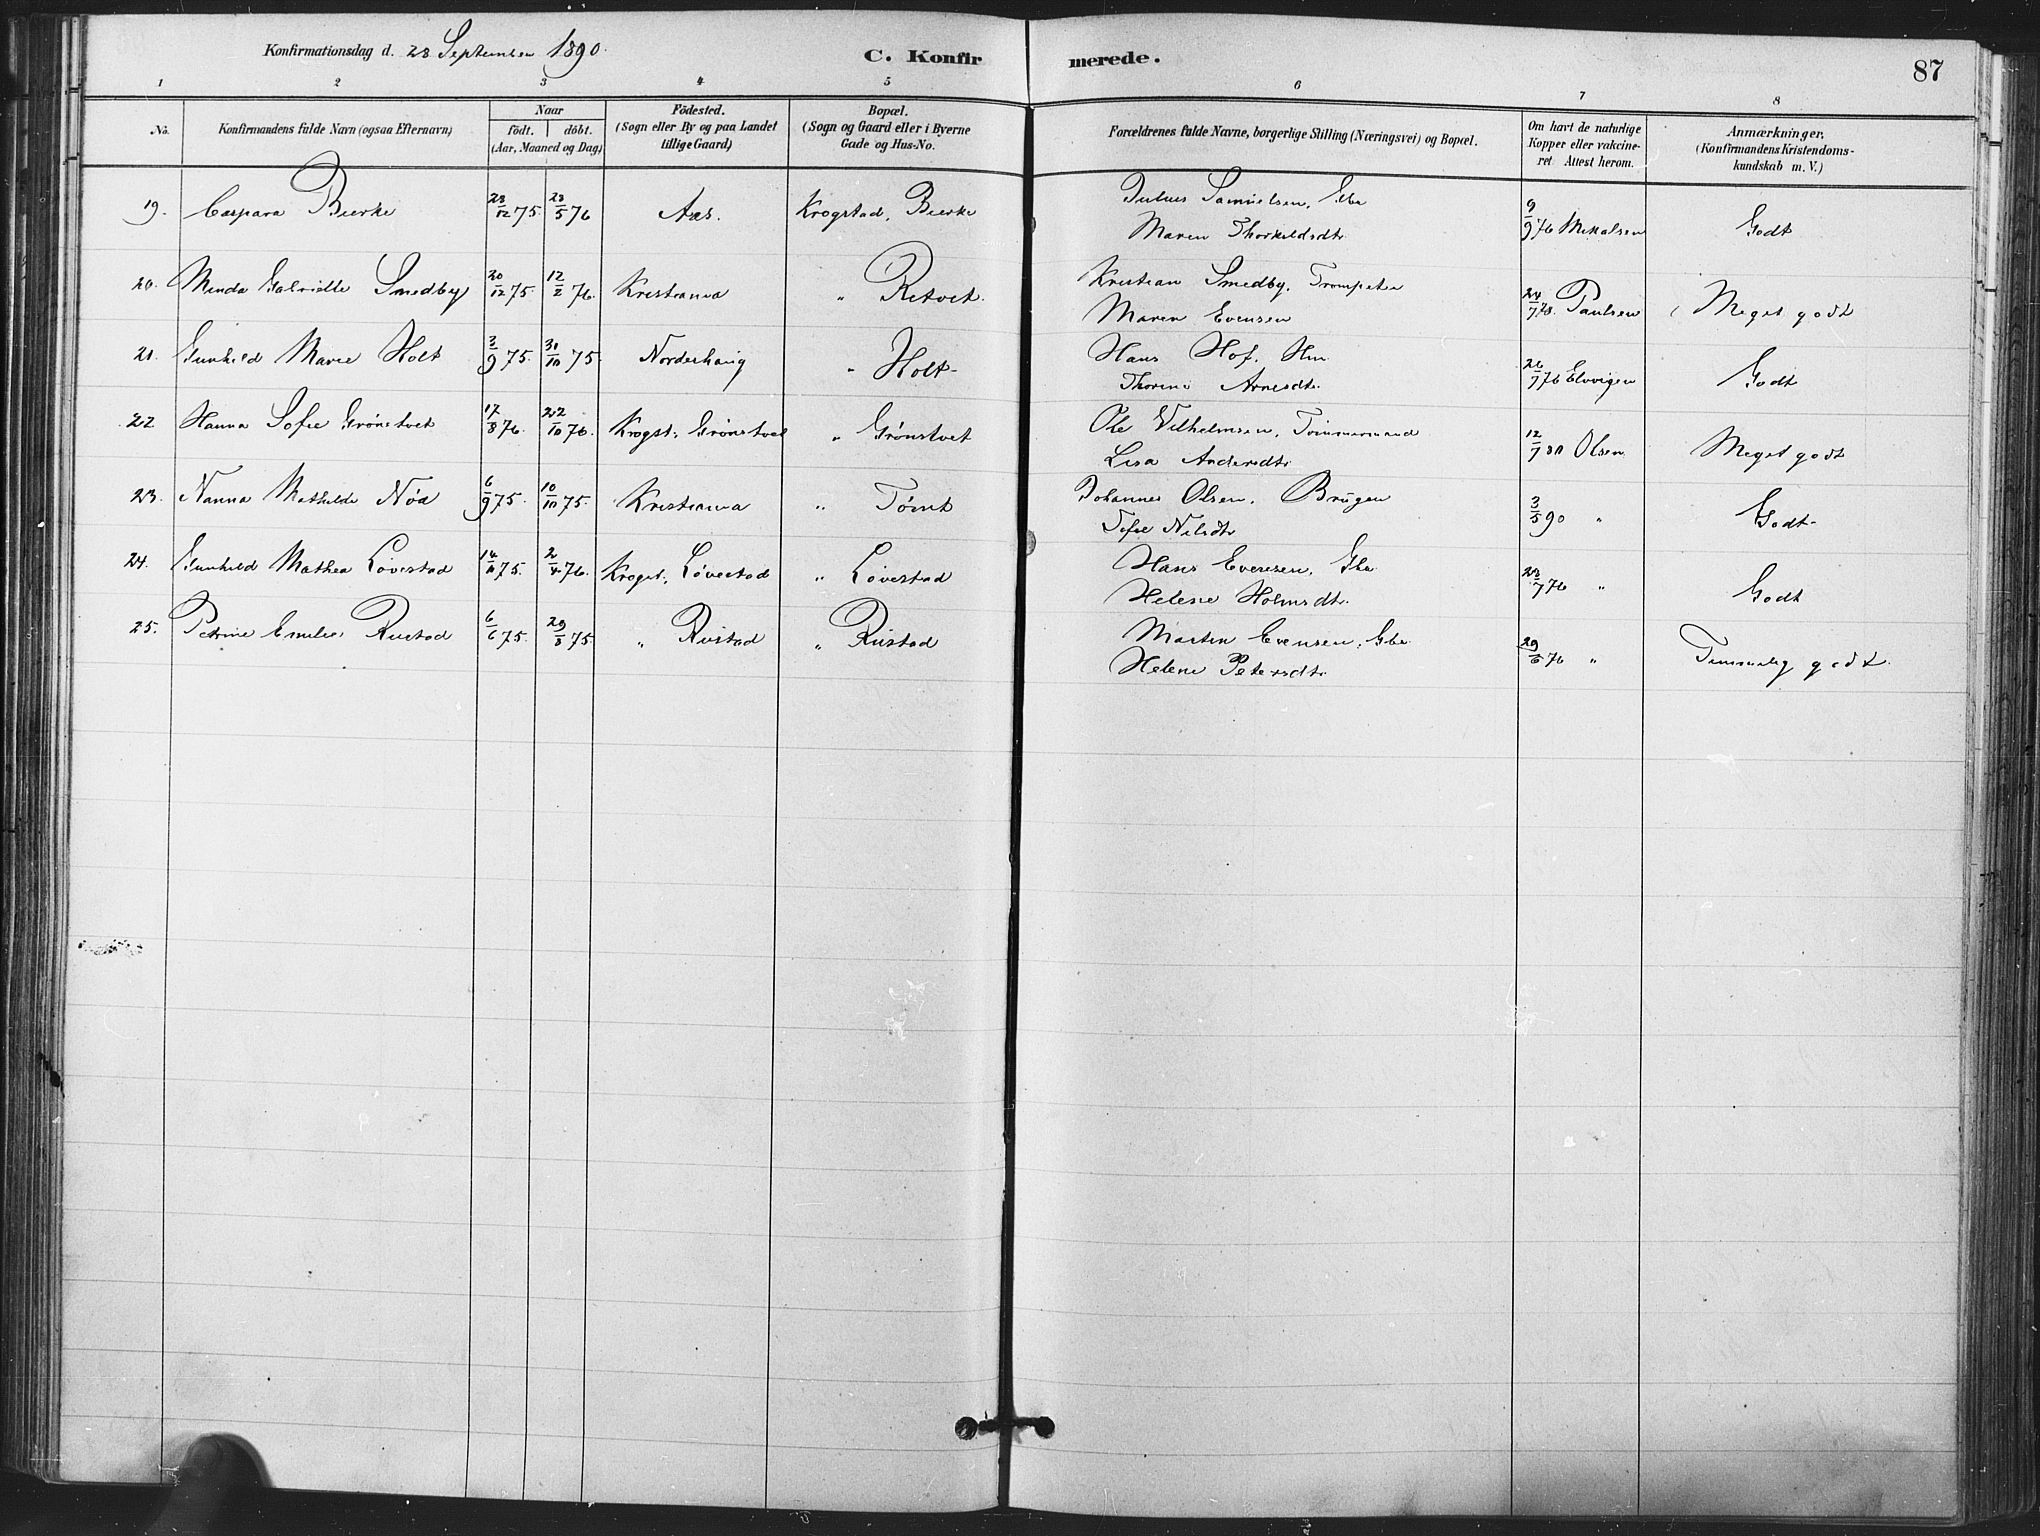 Konfirmationsdag d. 28 September 1890. C. Konfirmerede. 87
1 2 3 4 5 6 7 8
No. Konfirmandens fulde Navn (ogsaa Efternavn) Naar födt. döbt. (Aar, Maaned og Dag) Födested. (Sogn eller By og paa Landet tillige Gaard) Bopæl. (Sogn og Gaard eller i Byerne Gade og Hus-No. Forældrenes fulde Navne, borgerlige Stilling (Næringsvei) og Bopæl. Om havt de naturlige Kopper eller vakcineret Attest herom. Anmærkninger. (Konfirmandens Kristendomskundskab m. V.)
19. Caspara Bierke 23/12 75. 23/5 76 Aas. Krogstad, Bierke Julius Samuelsen, 9/9 76 Mikalsen Godt
Maren Thorkildsdtr.
20. Minda Gabrielle Smedby 20/12 75. 12/2 76. Kristiania " Retvet. Kristian Smedby, Trompeter 24/7 78. Paulsen Meget godt
Maren Evensen
21. Gunhild Marie Holt 3/9 75. 31/10 75. Norderhaug " Holt Hans Hof. Hm. 26/7 76 Elvigen Godt
Thorine Arnesdtr.
22 Hanna Sofie Grønstvet 17/8 76. 22/10 76. Krogst. Grønstvet " Grønstvet Ole Vilhelmsen, Tømmermand 12/7 80 Olsen Meget godt
Lisa Andersdtr.
23. Nanna Mathilde Nød 6/9 75. 10/10 75. Kristiania " Tømt Johannes Olsen. Bruger 3/5 90 " Godt
Sofie Nilsdtr
24. Gunhild Mathea Løvestad 14/11 75. 2/4 76. Krogst. Løvestad " Løvestad Hans Evensen, Gbr 23/7 76 " Godt
Helene Holmsdtr.
25. Petrine Emilie Rustad 6/6 75. 29/8 75. " Rustad " Rustad Martin Evensen, Gbr 29/6 76 " Temmelig godt.
Helene Petersdtr.